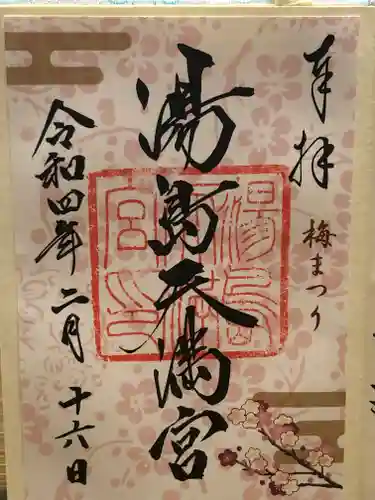 奉拝
梅まつり
湯島天満宮
令和四年二月十六日